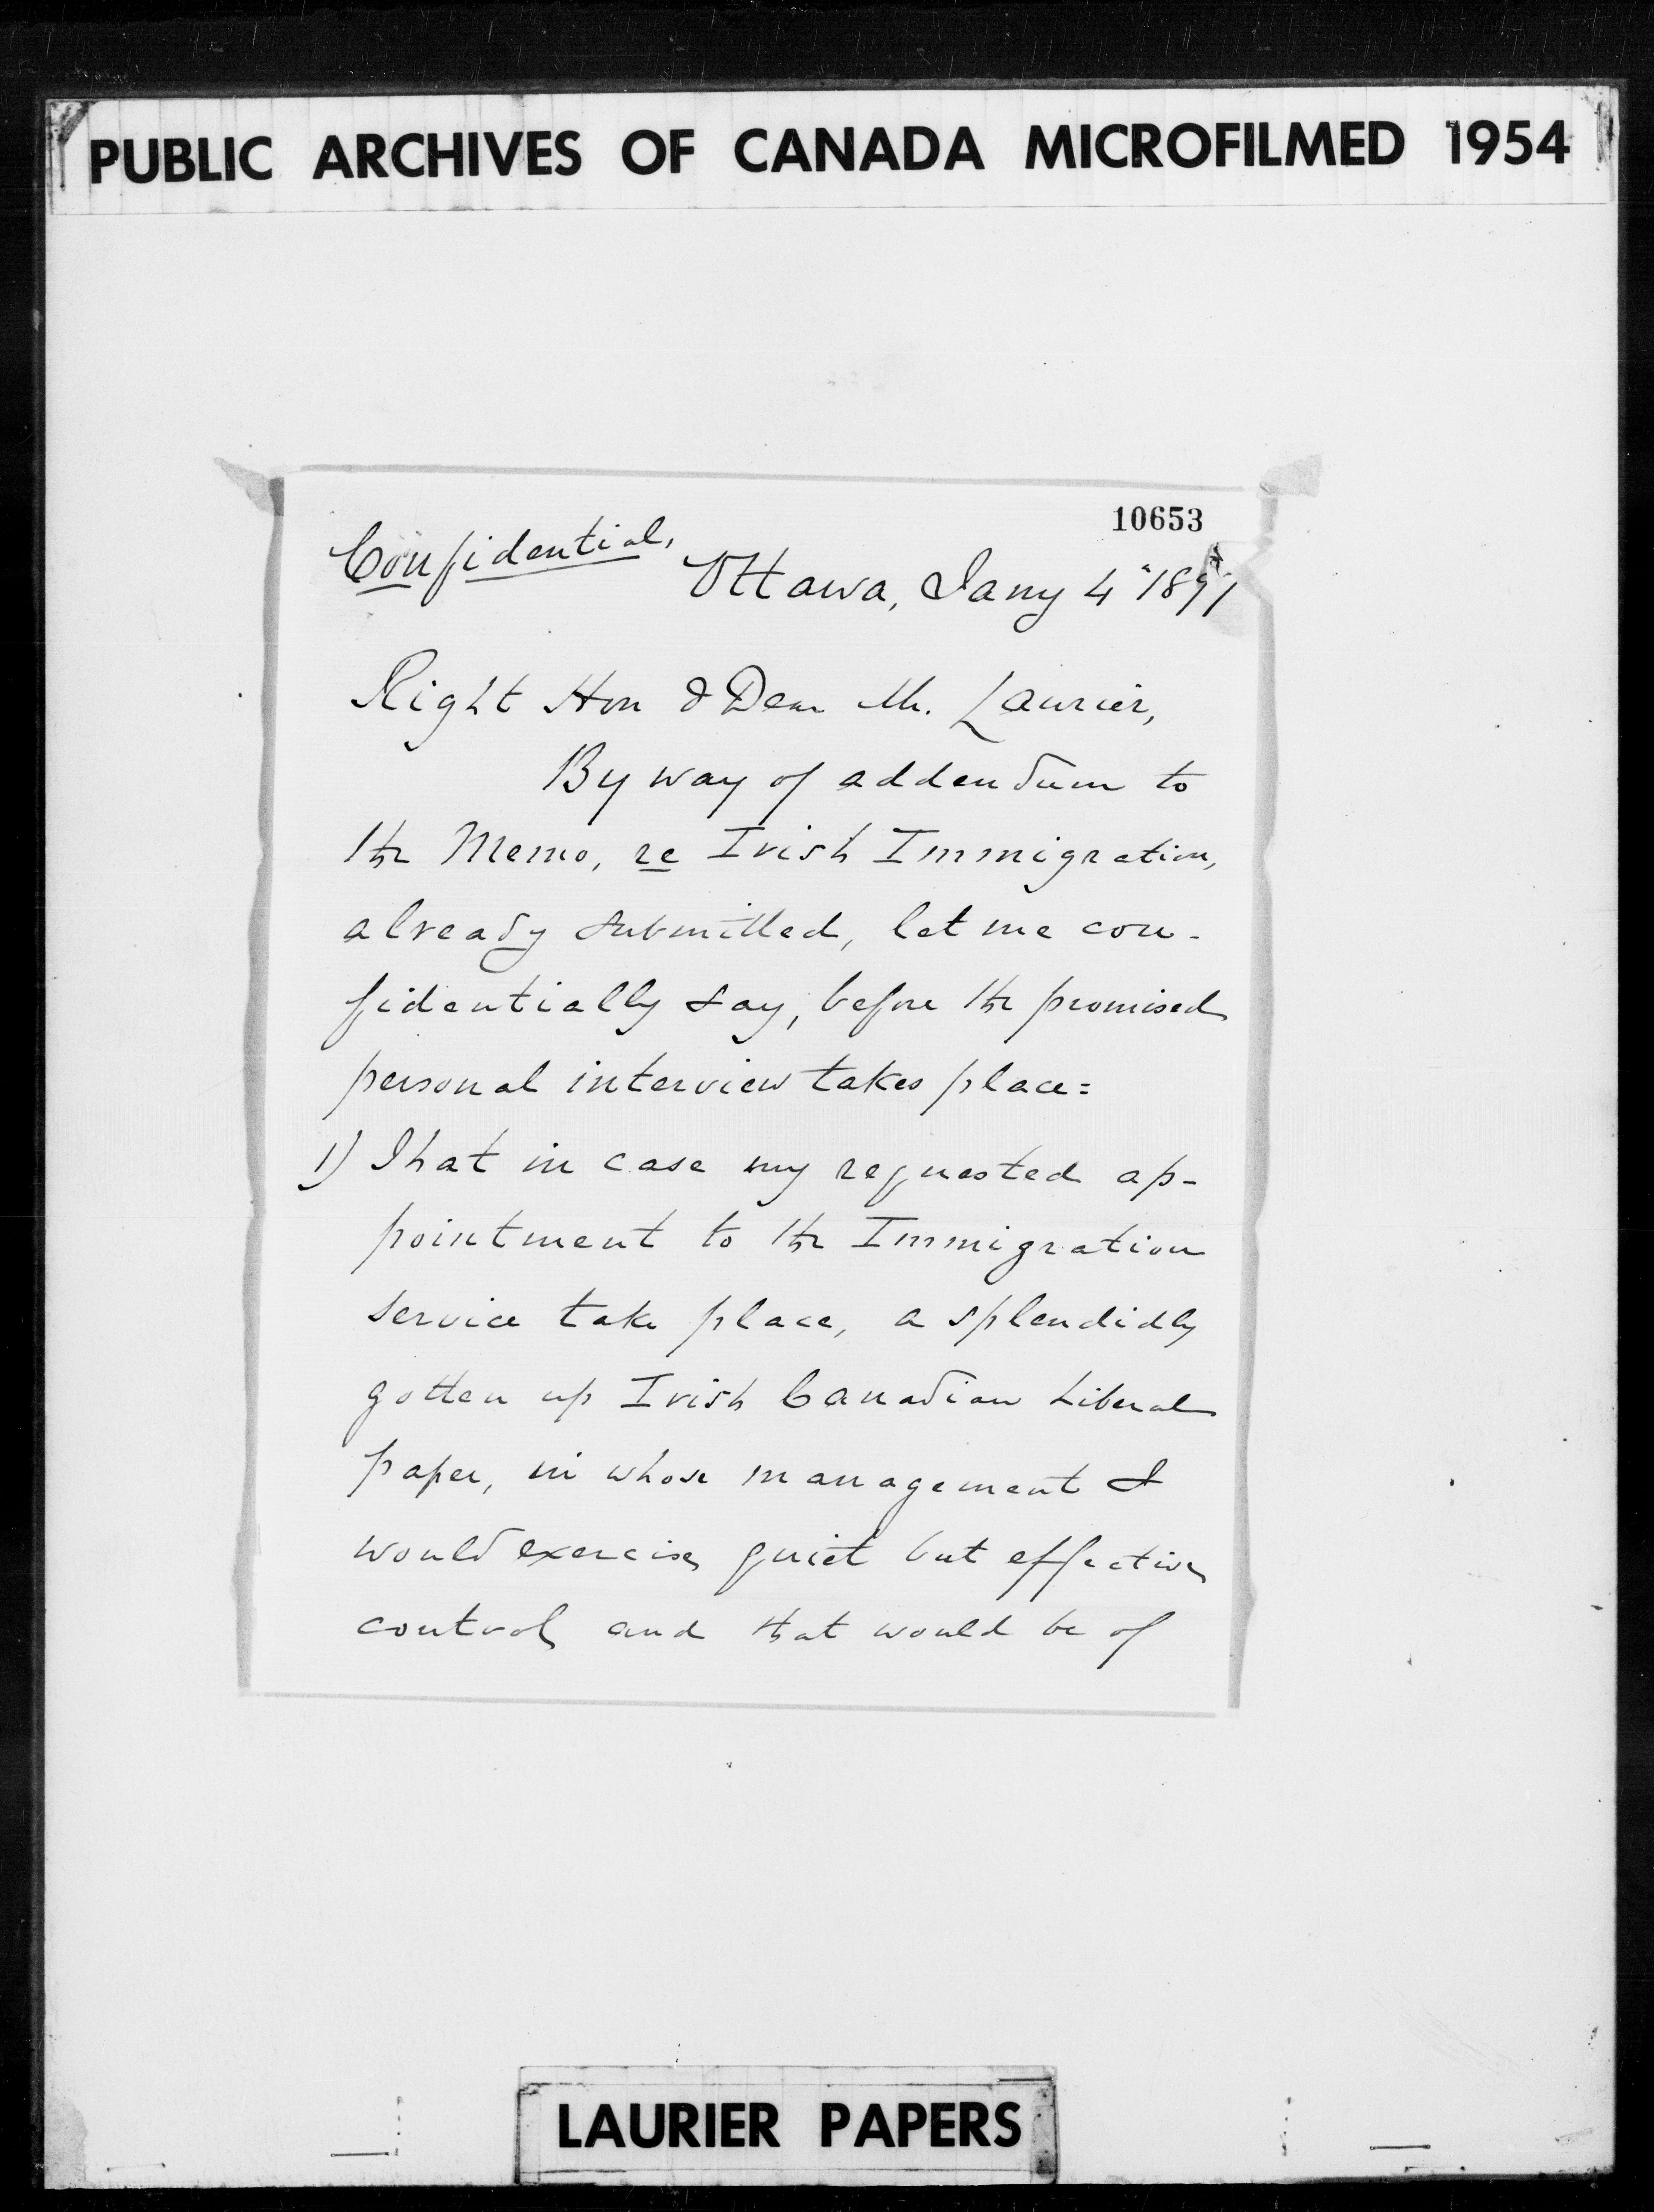 PUBLIC ARCHIVES OF CANADA MICROFILMED 1954
10653
Confidential,
Ottawa, Jany 4" 1897
Right Hon & Dear Mr. Laurier,
By way of addendum to
the Memo, re Irish Immigration,
already submitted, let me con-
fidentially say, before the promised
personal interview takes place:
1) That in case my requested ap-
pointment to the Immigration
service take place, a splendidly
gotten up Irish Canadian Liberal
paper, in whose management I
would exercise quiet but effective
control and that would be of
LAURIER PAPERS